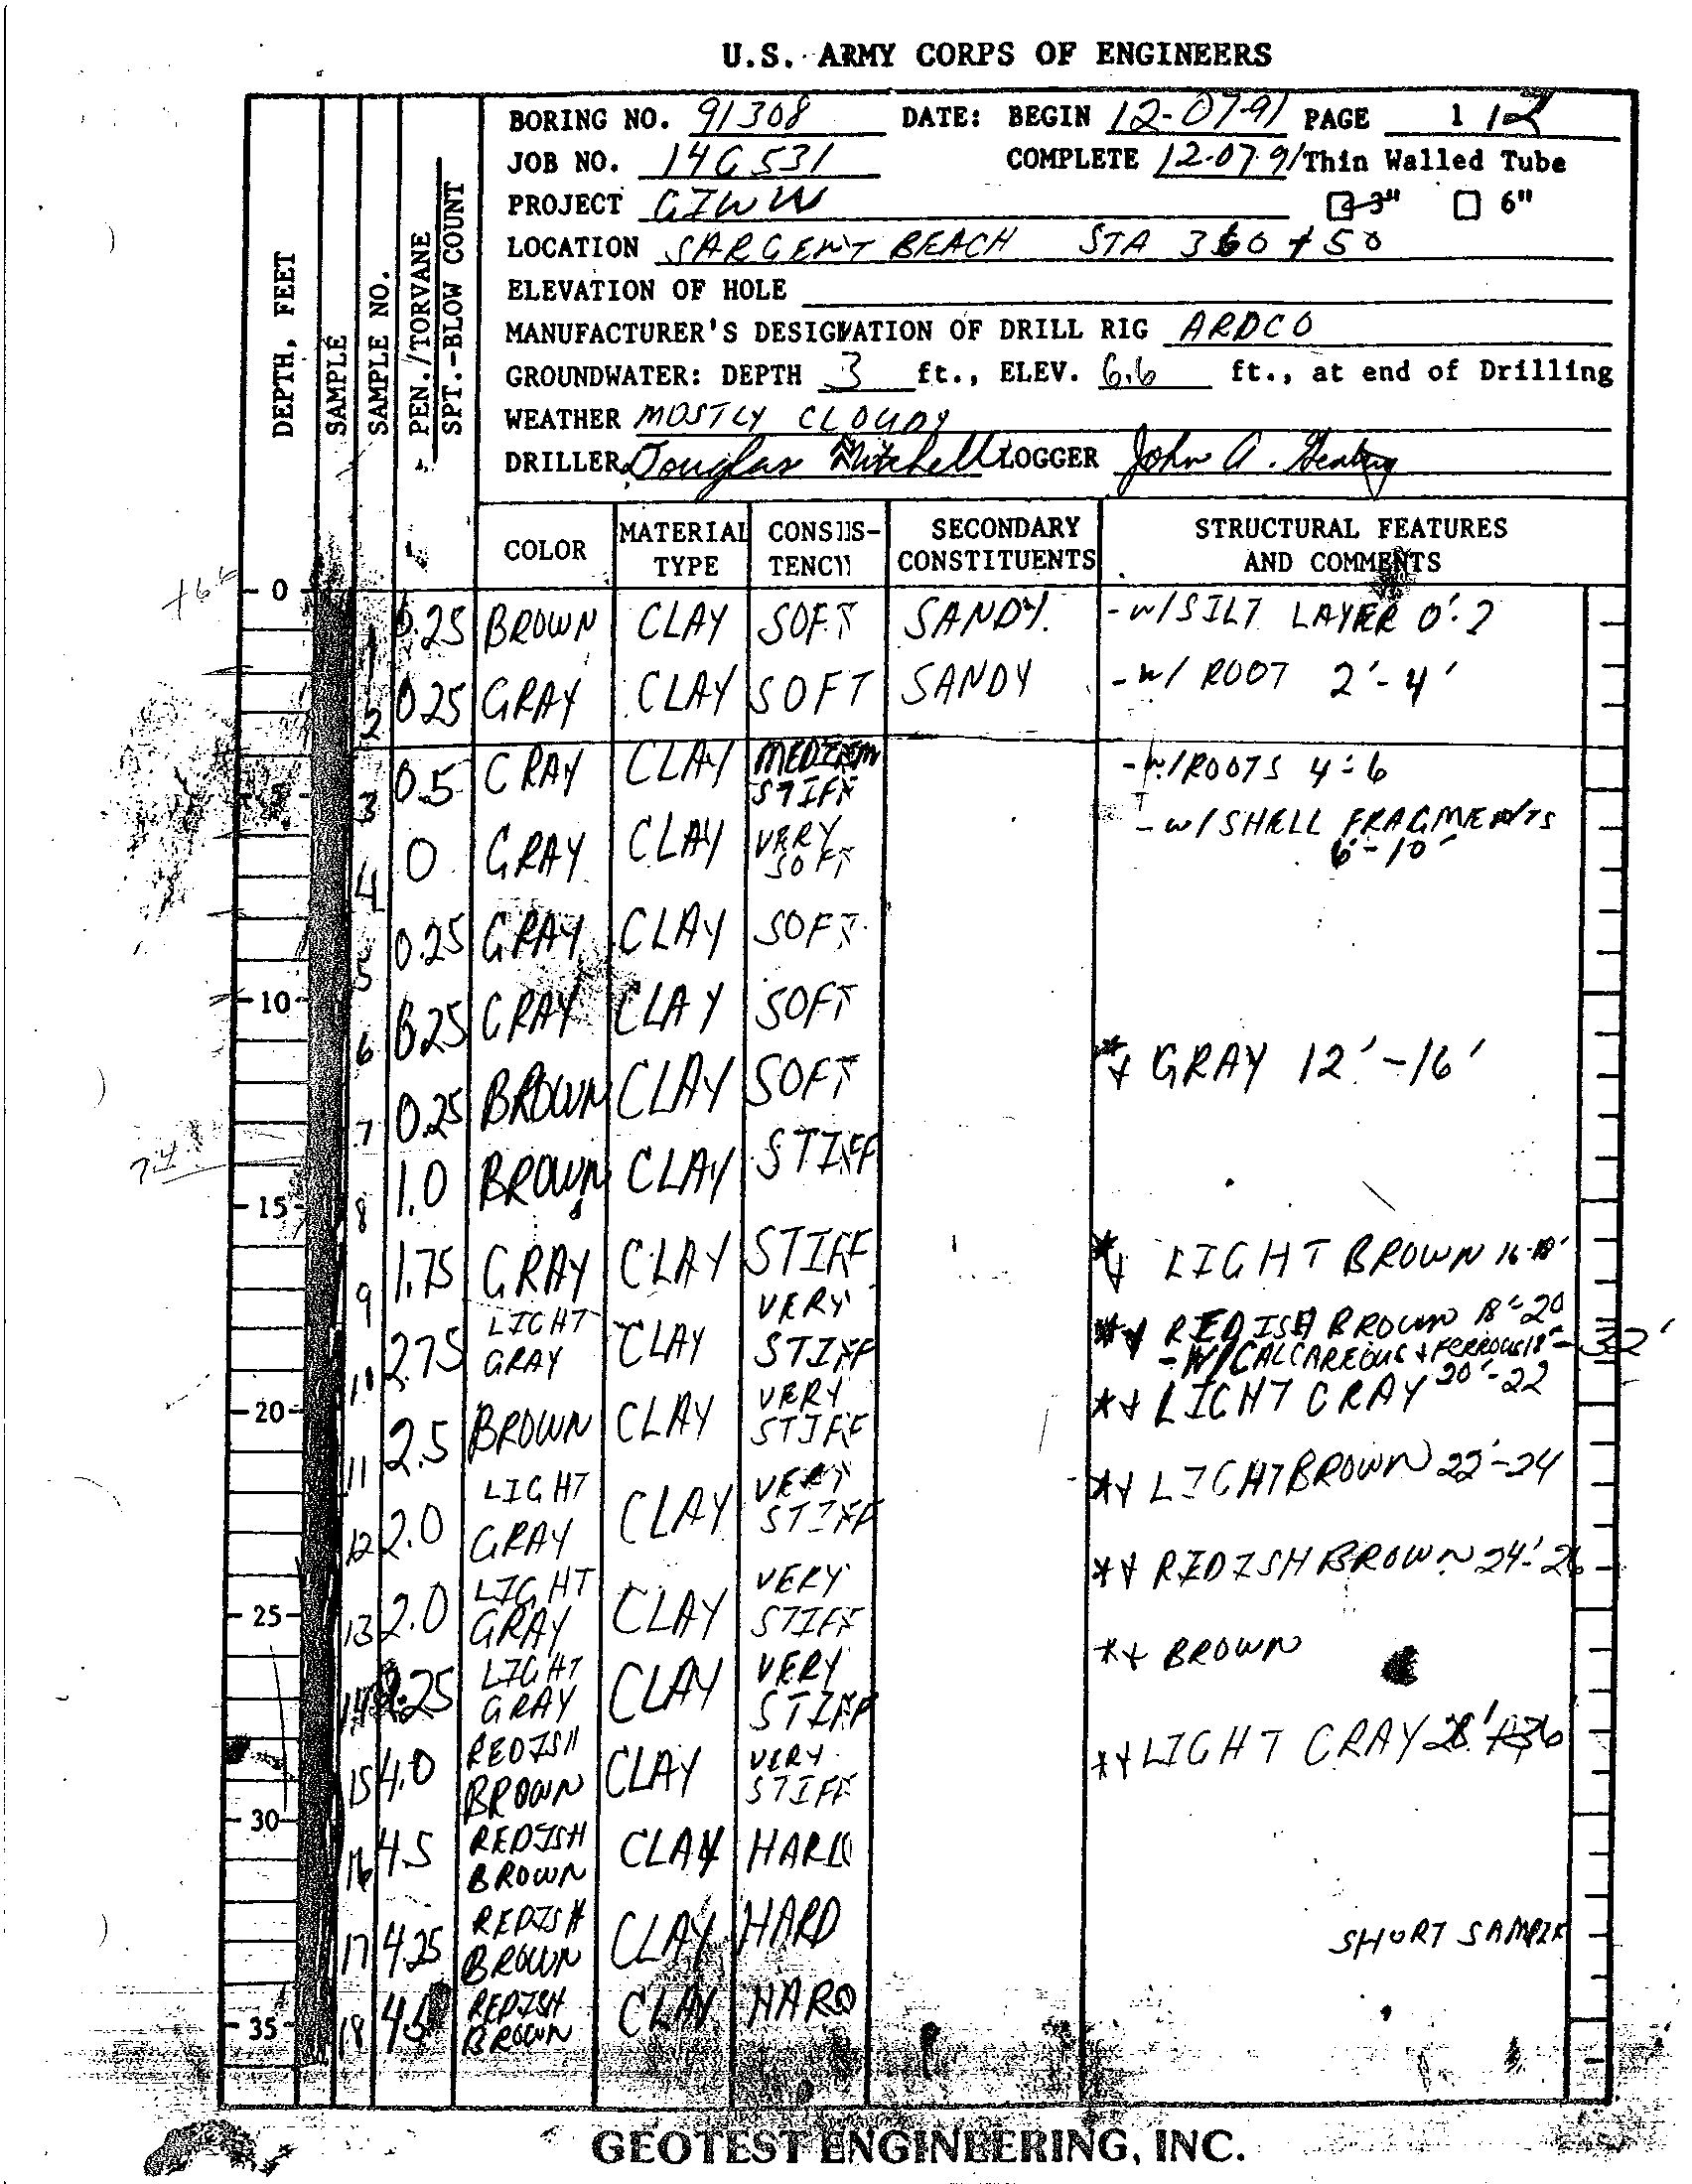 U.S. ARMY CORPS OF ENGINEERS
BORING NO. 91308 DATE: BEGIN 12-07-91 PAGE 1 / 2
JOB NO. 14G531 COMPLETE 12-07-91 Thin Walled Tube
PROJECT GIWW 3" 6"
LOCATION SARGENT BEACH STA 360+50
ELEVATION OF HOLE
MANUFACTURER'S DESIGNATION OF DRILL RIG ARDCO
GROUNDWATER: DEPTH 3 ft., ELEV. 6.6 ft., at end of Drilling
WEATHER MOSTLY CLOUDY
DRILLER Douglas Mitchell LOGGER John A.
DEPTH, FEET SAMPLE SAMPLE NO. PEN./TORVANE SPT.-BLOW COUNT
COLOR MATERIAL TYPE CONSISTENCY SECONDARY CONSTITUENTS STRUCTURAL FEATURES AND COMMENTS
+6.6 0
1 0.25 BROWN CLAY SOFT SANDY - W/SILT LAYER 0'-2
2 0.25 GRAY CLAY SOFT SANDY - W/ ROOT 2'-4'
3 0.5 GRAY CLAY MEDIUM STIFF - W/ROOTS 4'-6
4 0 GRAY CLAY VERY SOFT - W/SHELL FRAGMENTS 6'-10'
5 0.25 GRAY CLAY SOFT
10
6 0.25 GRAY CLAY SOFT
7 0.25 BROWN CLAY SOFT ** GRAY 12'-16'
-7.4
8 1.0 BROWN CLAY STIFF
15
9 1.75 GRAY CLAY STIFF ** LIGHT BROWN 16-18'
10 2.75 LIGHT GRAY CLAY VERY STIFF ** REDISH BROWN 18'-20
- W/CALCAREOUS & FERROUS 18'-32'
20
11 2.5 BROWN CLAY VERY STIFF ** LIGHT GRAY 20'-22
12 2.0 LIGHT GRAY CLAY VERY STIFF ** LIGHT BROWN 22'-24
13 2.0 LIGHT GRAY CLAY VERY STIFF ** REDISH BROWN 24'-26
25
14 2.25 LIGHT GRAY CLAY VERY STIFF ** BROWN
15 4.0 REDISH BROWN CLAY VERY STIFF ** LIGHT GRAY 28'-36
30
16 4.5 REDISH BROWN CLAY HARD
17 4.25 REDISH BROWN CLAY HARD SHORT SAMPLE
18 4.5 REDISH BROWN CLAY HARD
35
GEOTEST ENGINEERING, INC.